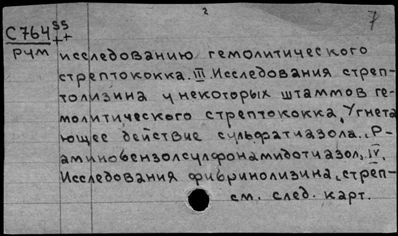 2
7
С764 SS
++
рум исследованию гемолитического
стрептококка. III Исследования стреп-
толизина у некоторых штаммов ге-
молитического стрептококка, Угнета
ющее действие сульфатиазола. (Р-
аминобензолсулфонамидотиазол, IV.
Исследования фибринолизина, стреп-
см. след. карт.